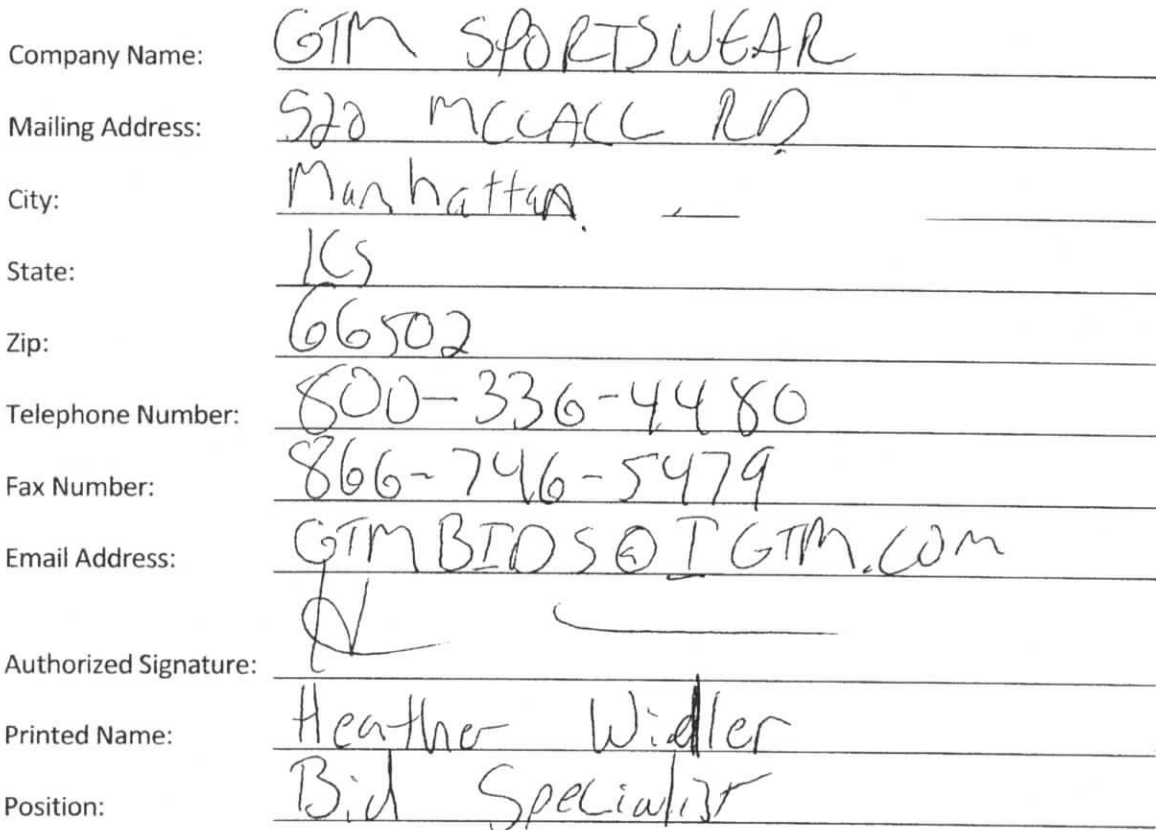 Company Name: GTM SPORTSWEAR
Mailing Address: 520 MCCALL RD
City: Manhattan
State: KS
Zip: 66502
Telephone Number: 800-336-4480
Fax Number: 866-746-5479
Email Address: GTMBIDS@IGTM.COM
Authorized Signature:
Printed Name: Heather Widler
Position: Bid Specialist